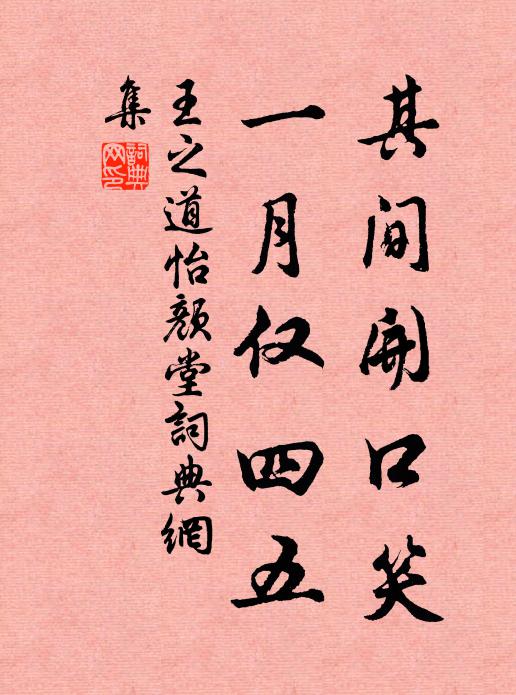 其间开口笑
一月仅四五
王之道怡颜堂詞典網
集
詞典网印